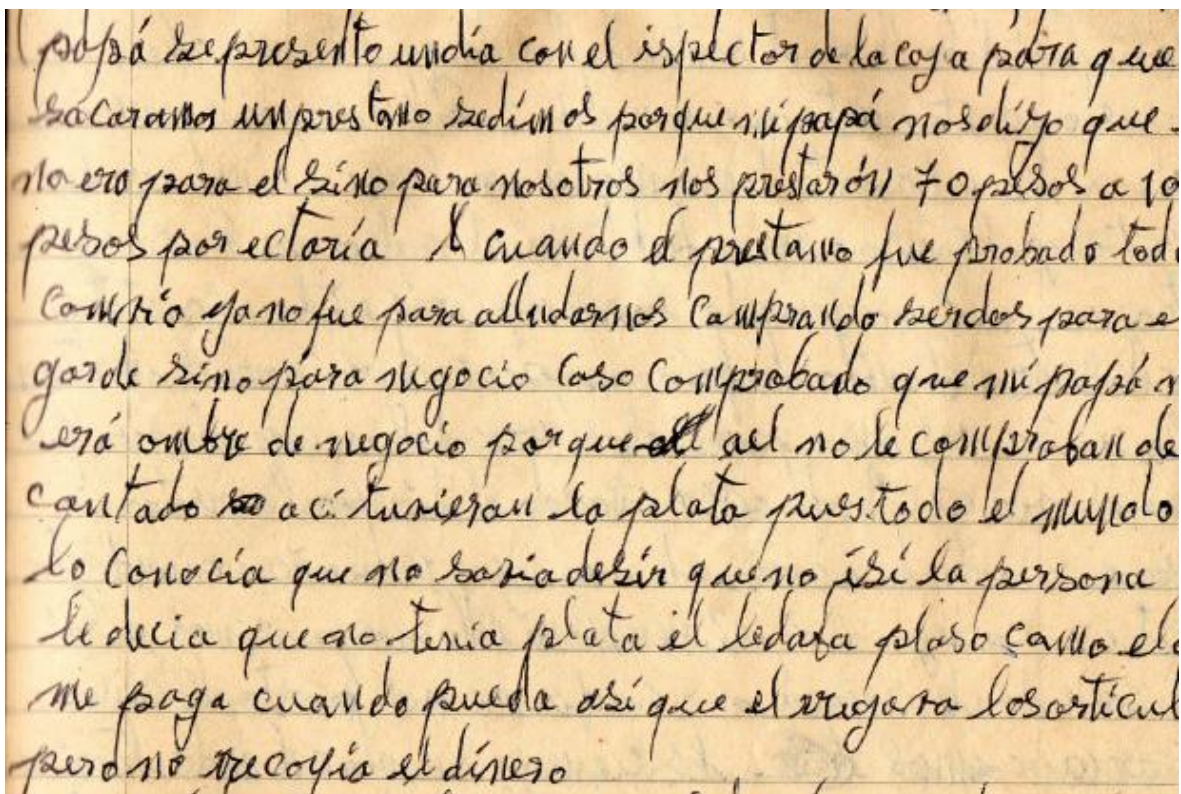 papá se presento undía con el ispector de la caja para que
sacaramos un prestamo sedimos porque mi papá nosdijo que
no ero para el sino para nosotros nos prestarón 70 pesos a 10
pesos por ectaría y cuando el prestamo fue probado todo
comvio ya no fue para alludarnos comprando serdos para e
gorde sino para negocio caso comprobado que mi papá n
erá ombre de negocio porque ael no le compraban de
contado aci tuvieran la plata pues todo el mundo
lo conocía que no savia desir que no isi la persona
le decia que no tenia plata él ledava plaso como el
me paga cuando pueda osi que el rregava losarticul
pero no rrecogia el dinero